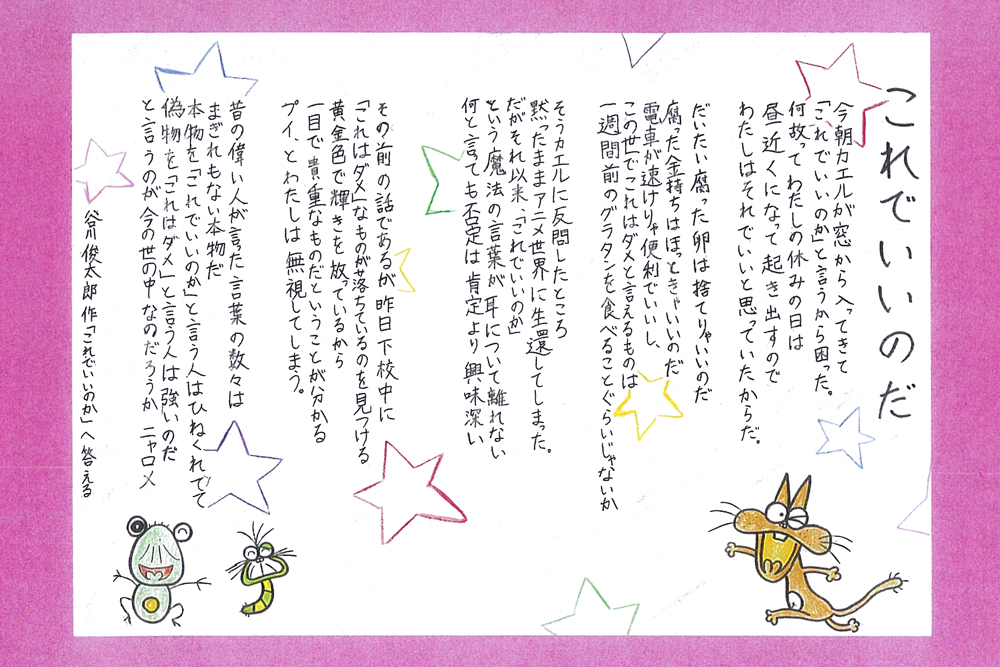 これでいいのだ
今朝カエルが窓から入ってきて
「これでいいのか」と言うから困った。
何故ってわたしの休みの日は
昼近くになって起き出すので
わたしはそれでいいと思っていたからだ。
だいたい腐った卵は捨てりゃいいのだ
腐った金持ちはほっときゃいいのだ
電車が速けりゃ便利でいいし、
この世でこれはダメと言えるものは
一週間前のグラタンを食べることぐらいじゃないか
そうカエルに反問したところ
黙ったままアニメ世界に生還してしまった。
だがそれ以来、「これでいいのか」
という魔法の言葉が耳について離れない
何と言っても否定は肯定より興味深い
その前の話であるが昨日下校中に
「これはダメ」なものが落ちているのを見つける
黄金色で輝きを放っているから
一目で貴重なものだということが分かる
プイ、とわたしは無視してしまう。
昔の偉い人が言った言葉の数々は
まぎれもない本物だ
本物を「これでいいのか」と言う人はひねくれてて
偽物を「これはダメ」と言う人は強いのだ
と言うのが今の世の中なのだろうか ニャロメ
谷川俊太郎作「これでいいのか」へ答える